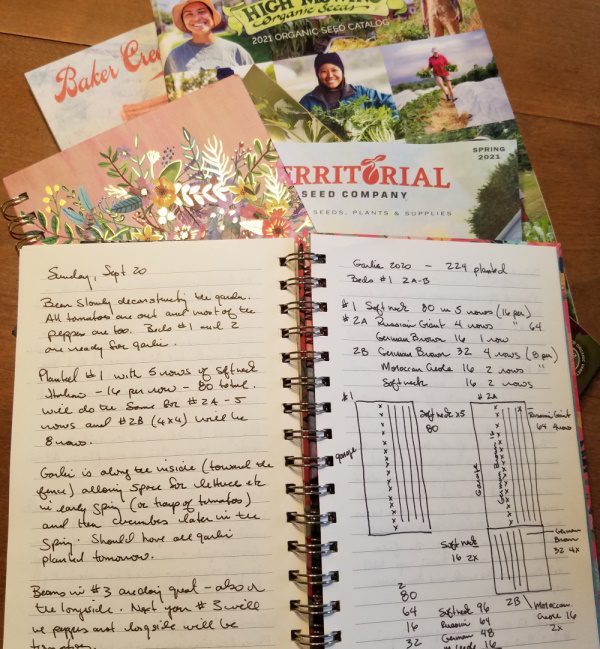 Baker Cree
HIGH MOWING
Organic Seeds
2021 ORGANIC SEED CATALOG
SPRING
2021
TERRITORIAL
SEED COMPANY
SEEDS, PLANTS & SUPPLIES
Sunday, Sept 20
Been slowly deconstructing the garden.
All tomatoes are out and most of the
peppers are too. Beds #1 and 2
are ready for garlic.
Planted #1 with 5 rows of softneck
Italian - 16 per row - 80 total.
Will do the same for #2A - 5
rows and #2B (4x4) will be
8 rows.
Garlic is along the inside (toward the
fence) allowing space for lettuce etc
in early spring (or transp of tomatoes)
and then cucumbers later in the
Spring. Should have all garlic
planted tomorrow.
Beans in #3 are doing great - also in
the longside. Next year #3 will
be peppers and longside will be
tomatoes.
Garlic 2020 - 224 planted
Beds #1 2A-B
#1 Softneck 80 in 5 rows (16 per)
#2A Russian Giant 4 rows " 64
German Brown 16 1 row
2B German Brown 32 4 rows (8 per)
Moroccan Creole 16 2 rows "
Softneck 16 2 rows
#1
Softneck x5
80
garage
#2A
Russian Giant
64 4rows
Garage
German Brown 16
German
Brown
32 4x
Softneck
16 2x
2B
Moroccan
Creole 16
2x
2
80
64
16
32
Softneck 96
Russian 64
German 48
M Creole 16